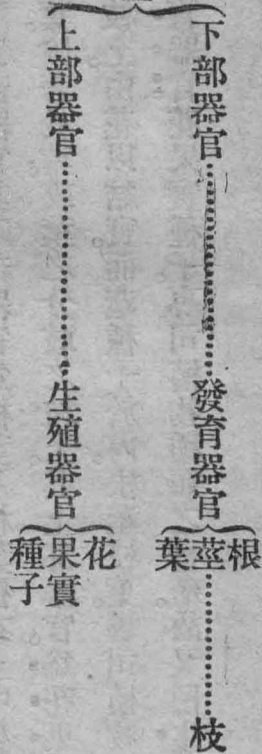 下部器官………發育器官
根
莖………枝
葉
上部器官………生殖器官
花
果實
種子